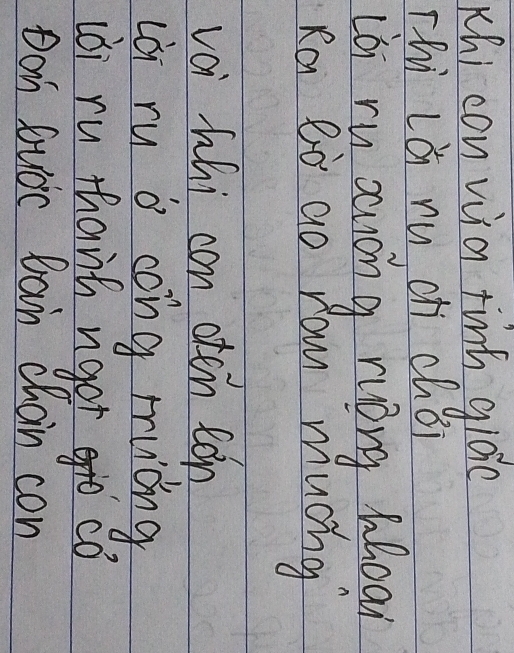 Khi con vừa tỉnh giấc
Thì Lời ru đi chơi
Lời ru xuống ruộng khoai
Ra bờ ao rau muống
và khi con đến lớp
Lời ru ở cổng trường
Lời ru thành ngọn cỏ
Đón bước bàn chân con